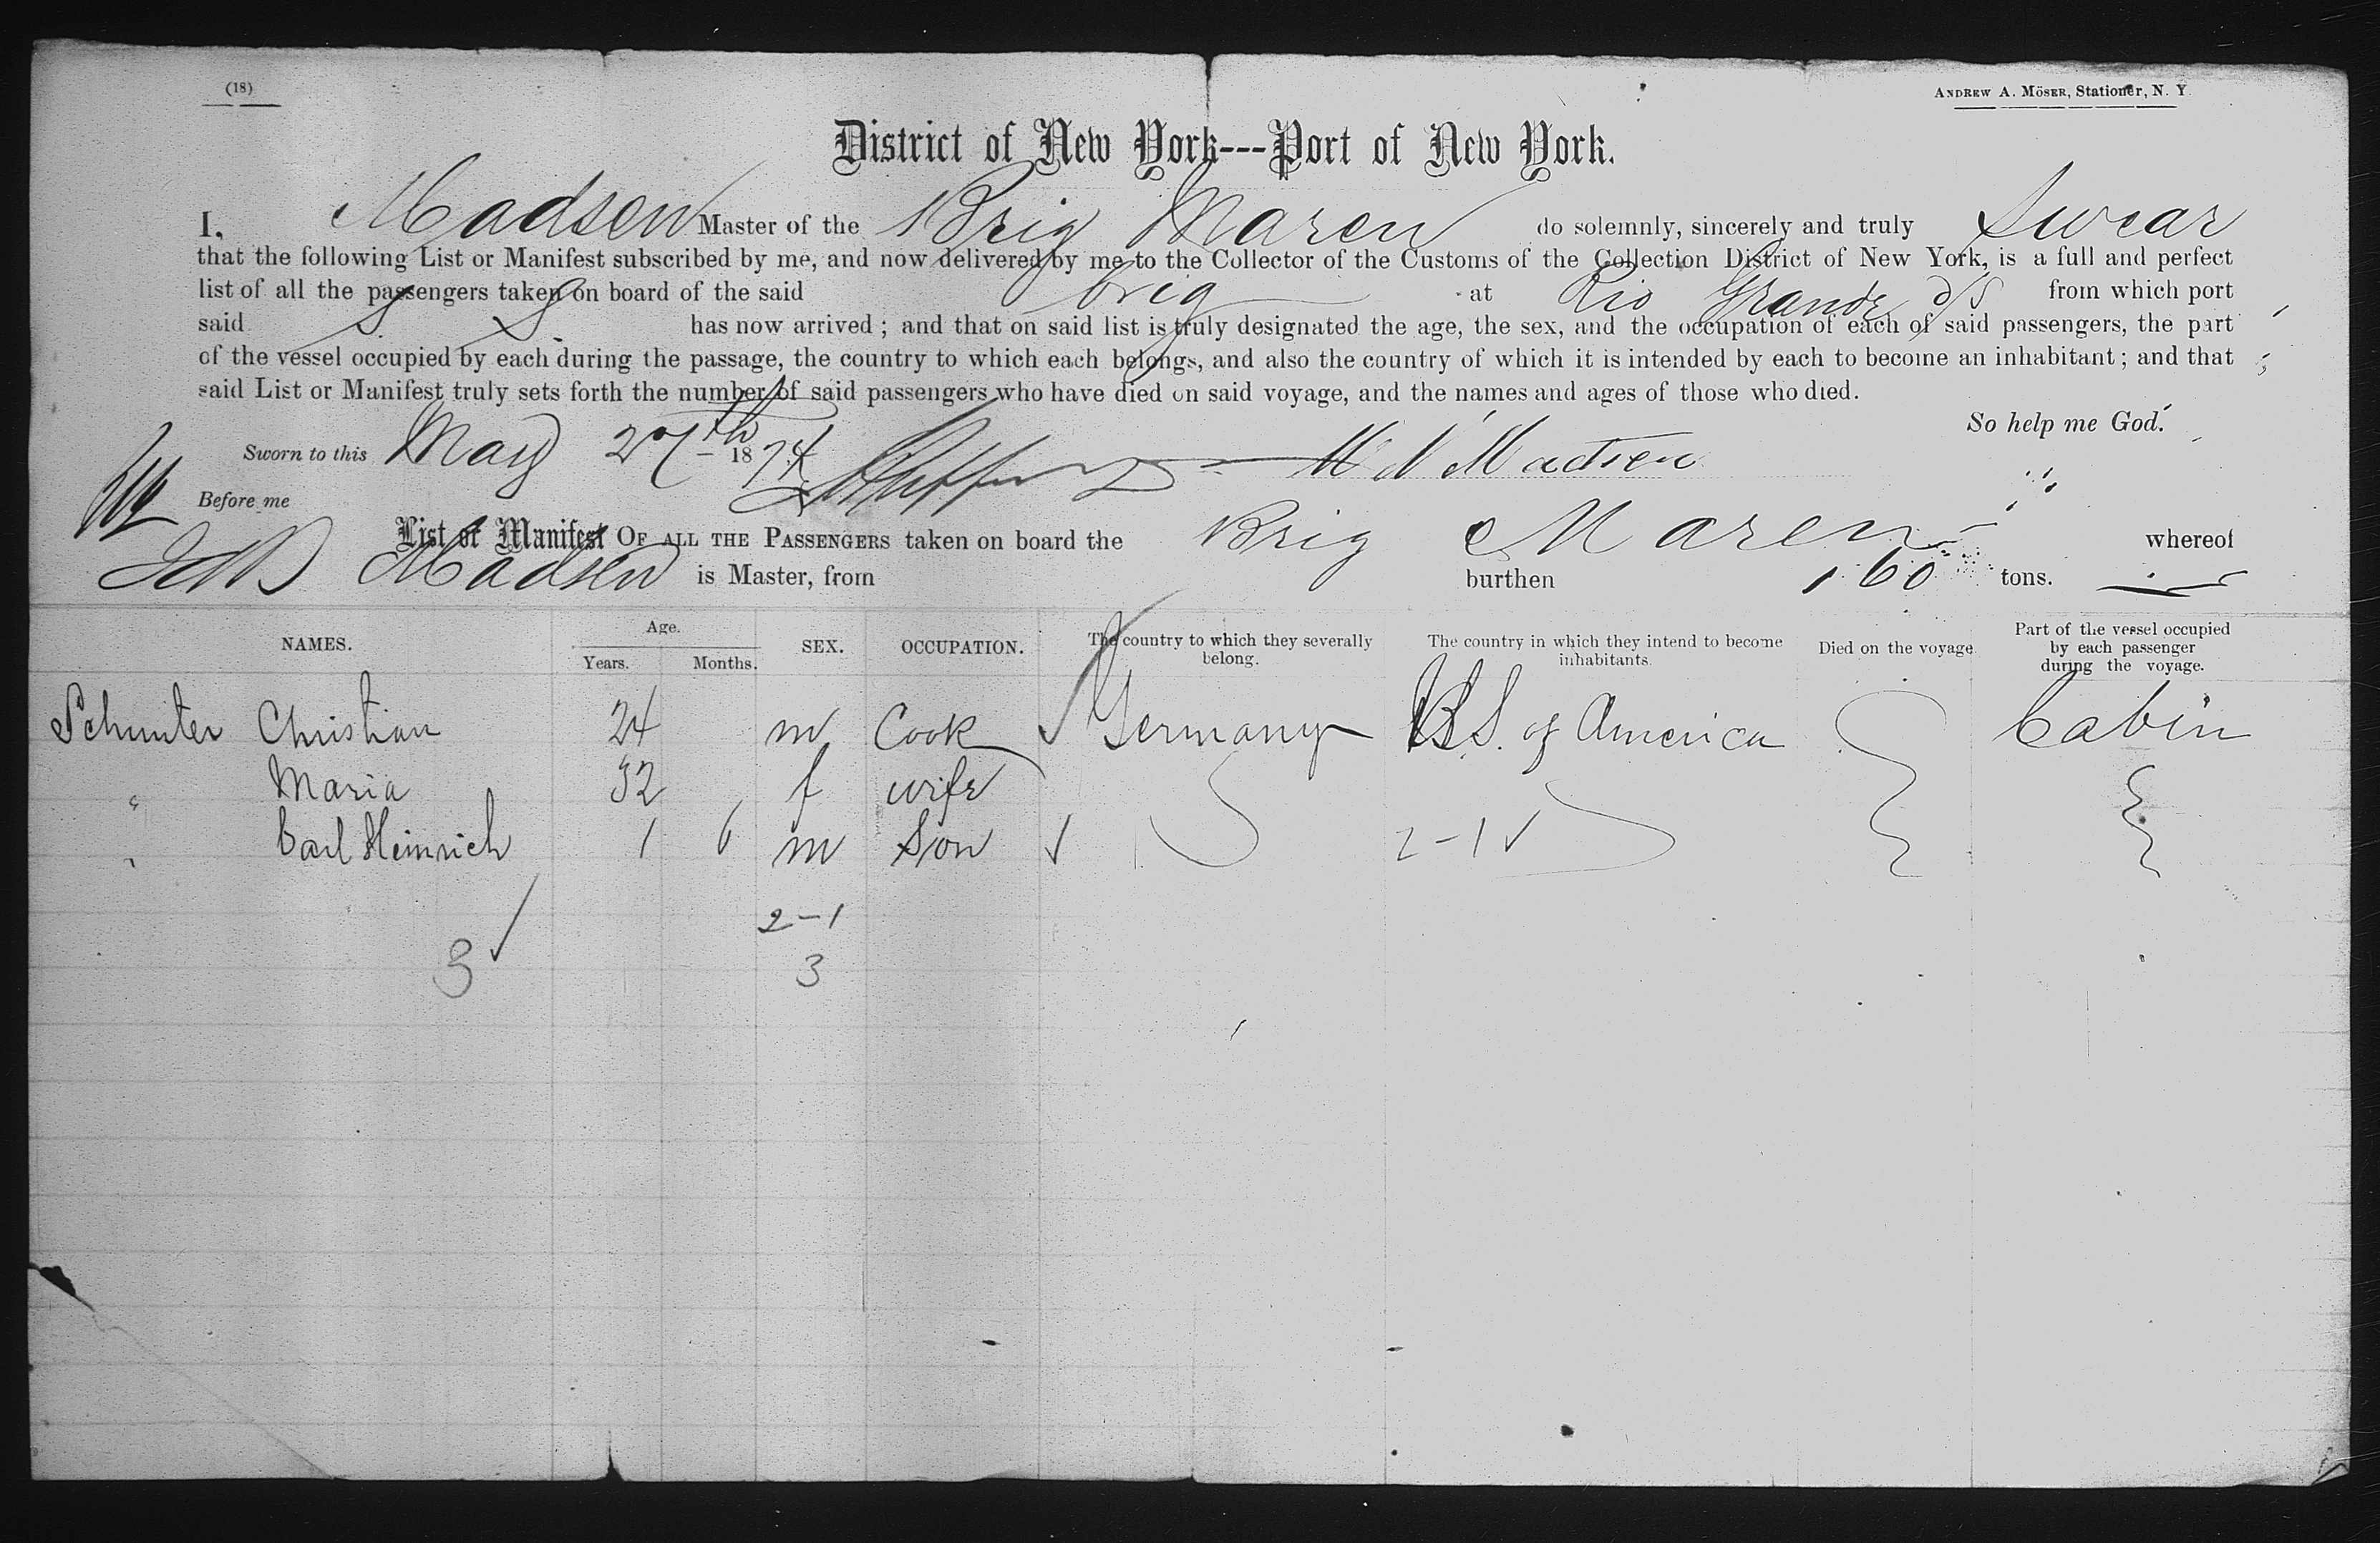 (18)
ANDREW A. MÖSER, Stationer, N. Y.
District of New York---Port of New York.
I, Madsen Master of the Brig Maren do solemnly, sincerely and truly Swear
that the following List or Manifest subscribed by me, and now delivered by me to the Collector of the Customs of the Collection District of New York, is a full and perfect
list of all the passengers taken on board of the said brig at Rio Grande d/S from which port
said has now arrived ; and that on said list is truly designated the age, the sex, and the occupation of each of said passengers, the part
of the vessel occupied by each during the passage, the country to which each belongs, and also the country of which it is intended by each to become an inhabitant ; and that
said List or Manifest truly sets forth the number of said passengers who have died on said voyage, and the names and ages of those who died.
So help me God.
Sworn to this May 27th 1874 Madsen
Before me
List or Manifest OF ALL THE PASSENGERS taken on board the Brig Maren whereof
Madsen is Master, from burthen 160 tons.
NAMES. Age. Years. Months. SEX. OCCUPATION. The country to which they severally belong. The country in which they intend to become inhabitants. Died on the voyage. Part of the vessel occupied by each passenger during the voyage.
Christian 24 m Cook Germany S. of America Cabin
" Maria 32 f wife
" Carl Heinrich 1 6 m Son 2-1
2-1
3 3